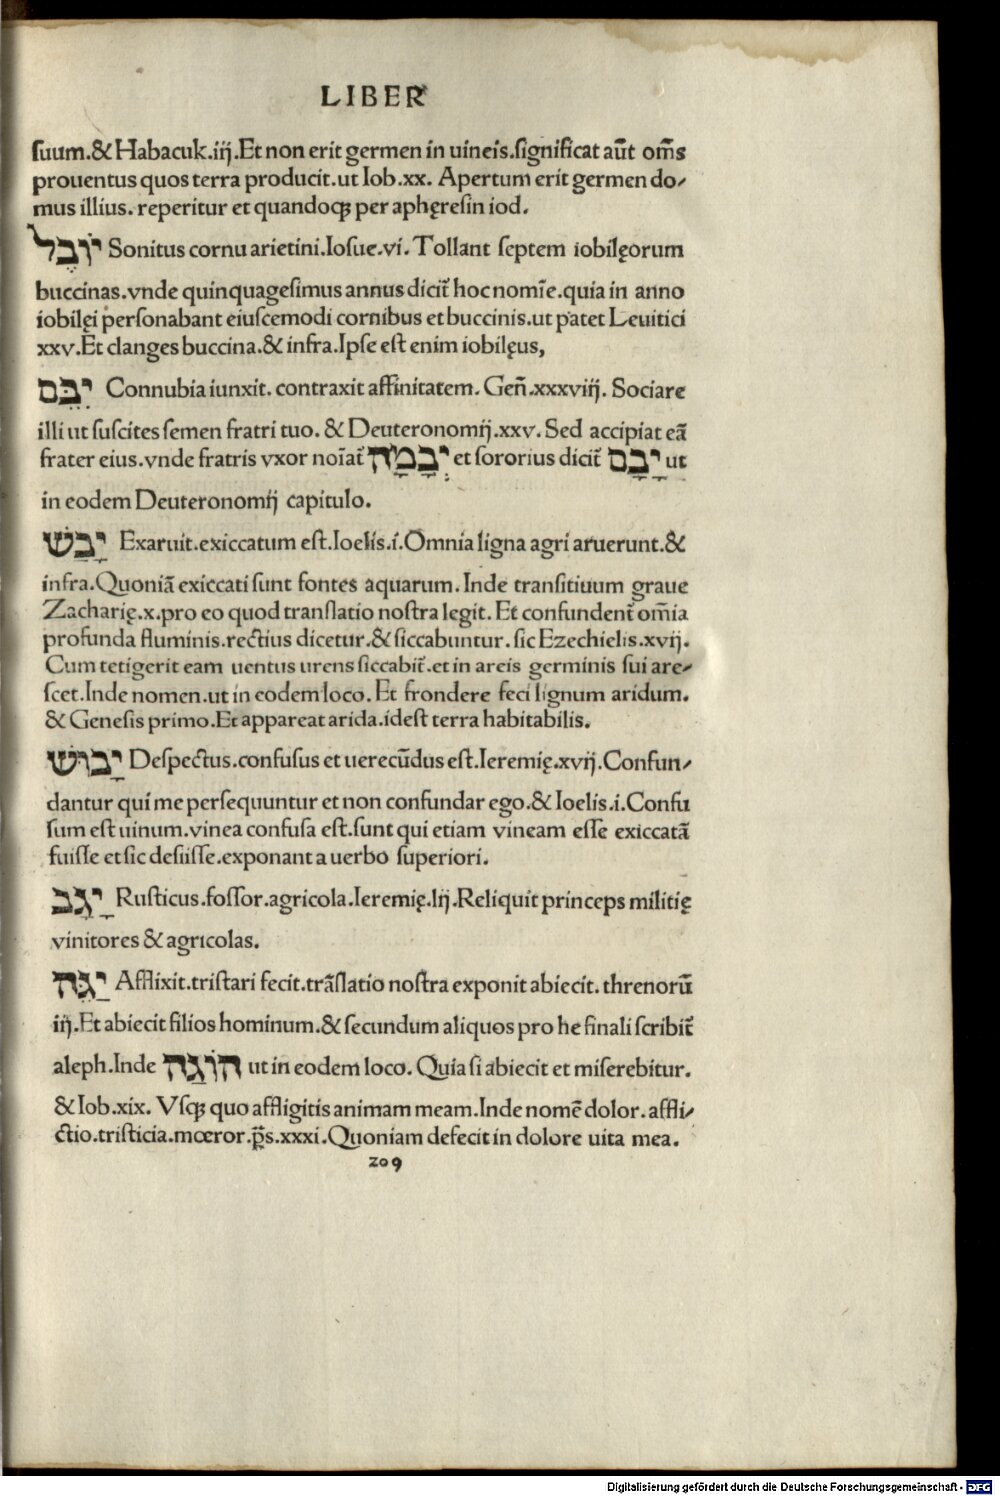 LIBER
suum.&Habacuk.iij.Et non erit germen in uineis.significat aũt om̃s
prouentus quos terra producit.ut Iob.xx. Apertum erit germen do/
mus illius. reperitur et quandoqꝫ per aphęresin iod.
יֹובֵל Sonitus cornu arietini.Iosue.vi. Tollant septem iobilęorum
buccinas.vnde quinquagesimus annus dicit᷑ hoc nomĩe.quia in anno
iobilęi personabant eiuscemodi cornibus et buccinis.ut patet Leuitici
xxv.Et clanges buccina.& infra.Ipse est enim iobilęus,
יִבֵּם Connubia iunxit. contraxit affinitatem. Geñ.xxxviij. Sociare
illi ut suscites semen fratri tuo. & Deuteronomij.xxv. Sed accipiat eã
frater eius.vnde fratris vxor noĩat᷑ יְבָמָה et sororius dicit᷑ יָבָם ut
in eodem Deuteronomij capitulo.
יָבַשׁ Exaruit.exiccatum est.Ioelis.i.Omnia ligna agri aruerunt.&
infra.Quoniã exiccati sunt fontes aquarum. Inde transitiuum graue
Zacharię.x.pro eo quod translatio nostra legit. Et confundent᷑ om̃ia
profunda fluminis.rectius dicetur.& siccabuntur. sic Ezechielis.xvij.
Cum tetigerit eam uentus urens siccabit᷑.et in areis germinis sui are/
scet.Inde nomen.ut in eodem loco. Et frondere feci lignum aridum.
& Genesis primo.Et appareat arida.idest terra habitabilis.
יָבוּשׁ Despectus.confusus et uerecũdus est.Ieremię.xvij.Confun/
dantur qui me persequuntur et non confundar ego.& Ioelis.i.Confu
sum est uinum.vinea confusa est.sunt qui etiam vineam esse exiccatã
fuisse et sic desiisse.exponant a uerbo superiori.
יָגַב Rusticus.fossor.agricola.Ieremię.lij.Reliquit princeps militię
vinitores & agricolas.
יַגֵּה Afflixit.tristari fecit.trãslatio nostra exponit abiecit. threnorũ
iij.Et abiecit filios hominum.& secundum aliquos pro he finali scribit᷑
aleph.Inde הוֹגַה ut in eodem loco. Quia si abiecit et miserebitur.
& Iob.xix. Vsqꝫ quo affligitis animam meam.Inde nomẽ dolor. affli/
ctio.tristicia.mœror.p̃s.xxxi.Quoniam defecit in dolore uita mea.
209
Digitalisierung gefördert durch die Deutsche Forschungsgemeinschaft - DFG